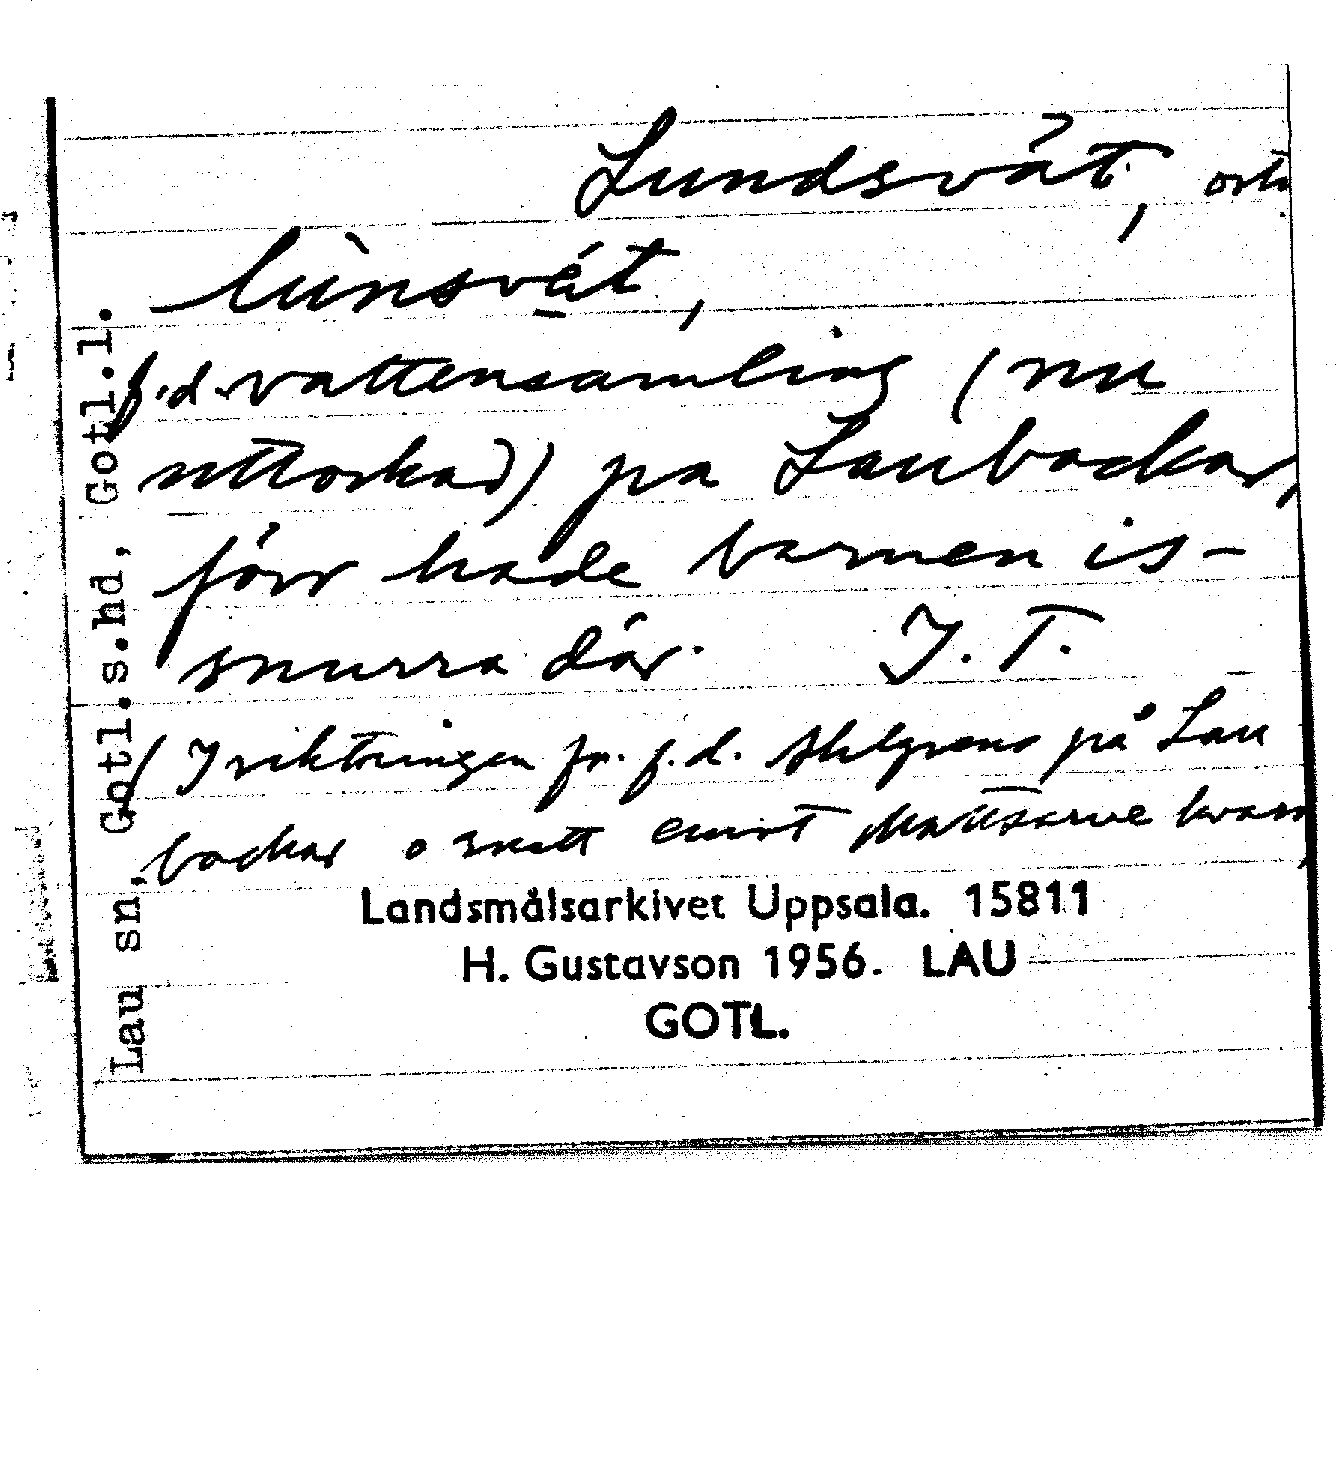 Lundsvät,
lùnsvät,
f.d. vattensamling (nu
uttorkad) på Laubackar,
förr hade barnen is-
snurra där. I. T.
(I riktningen fr. f.d. Ahlgrens på Lau
backar o snett emot Mattsarve kvarn,
Landsmålsarkivet Uppsala. 15811
H. Gustavson 1956. LAU
GOTL.
Lau sn, Gotl.s.hd, Gotl.l.